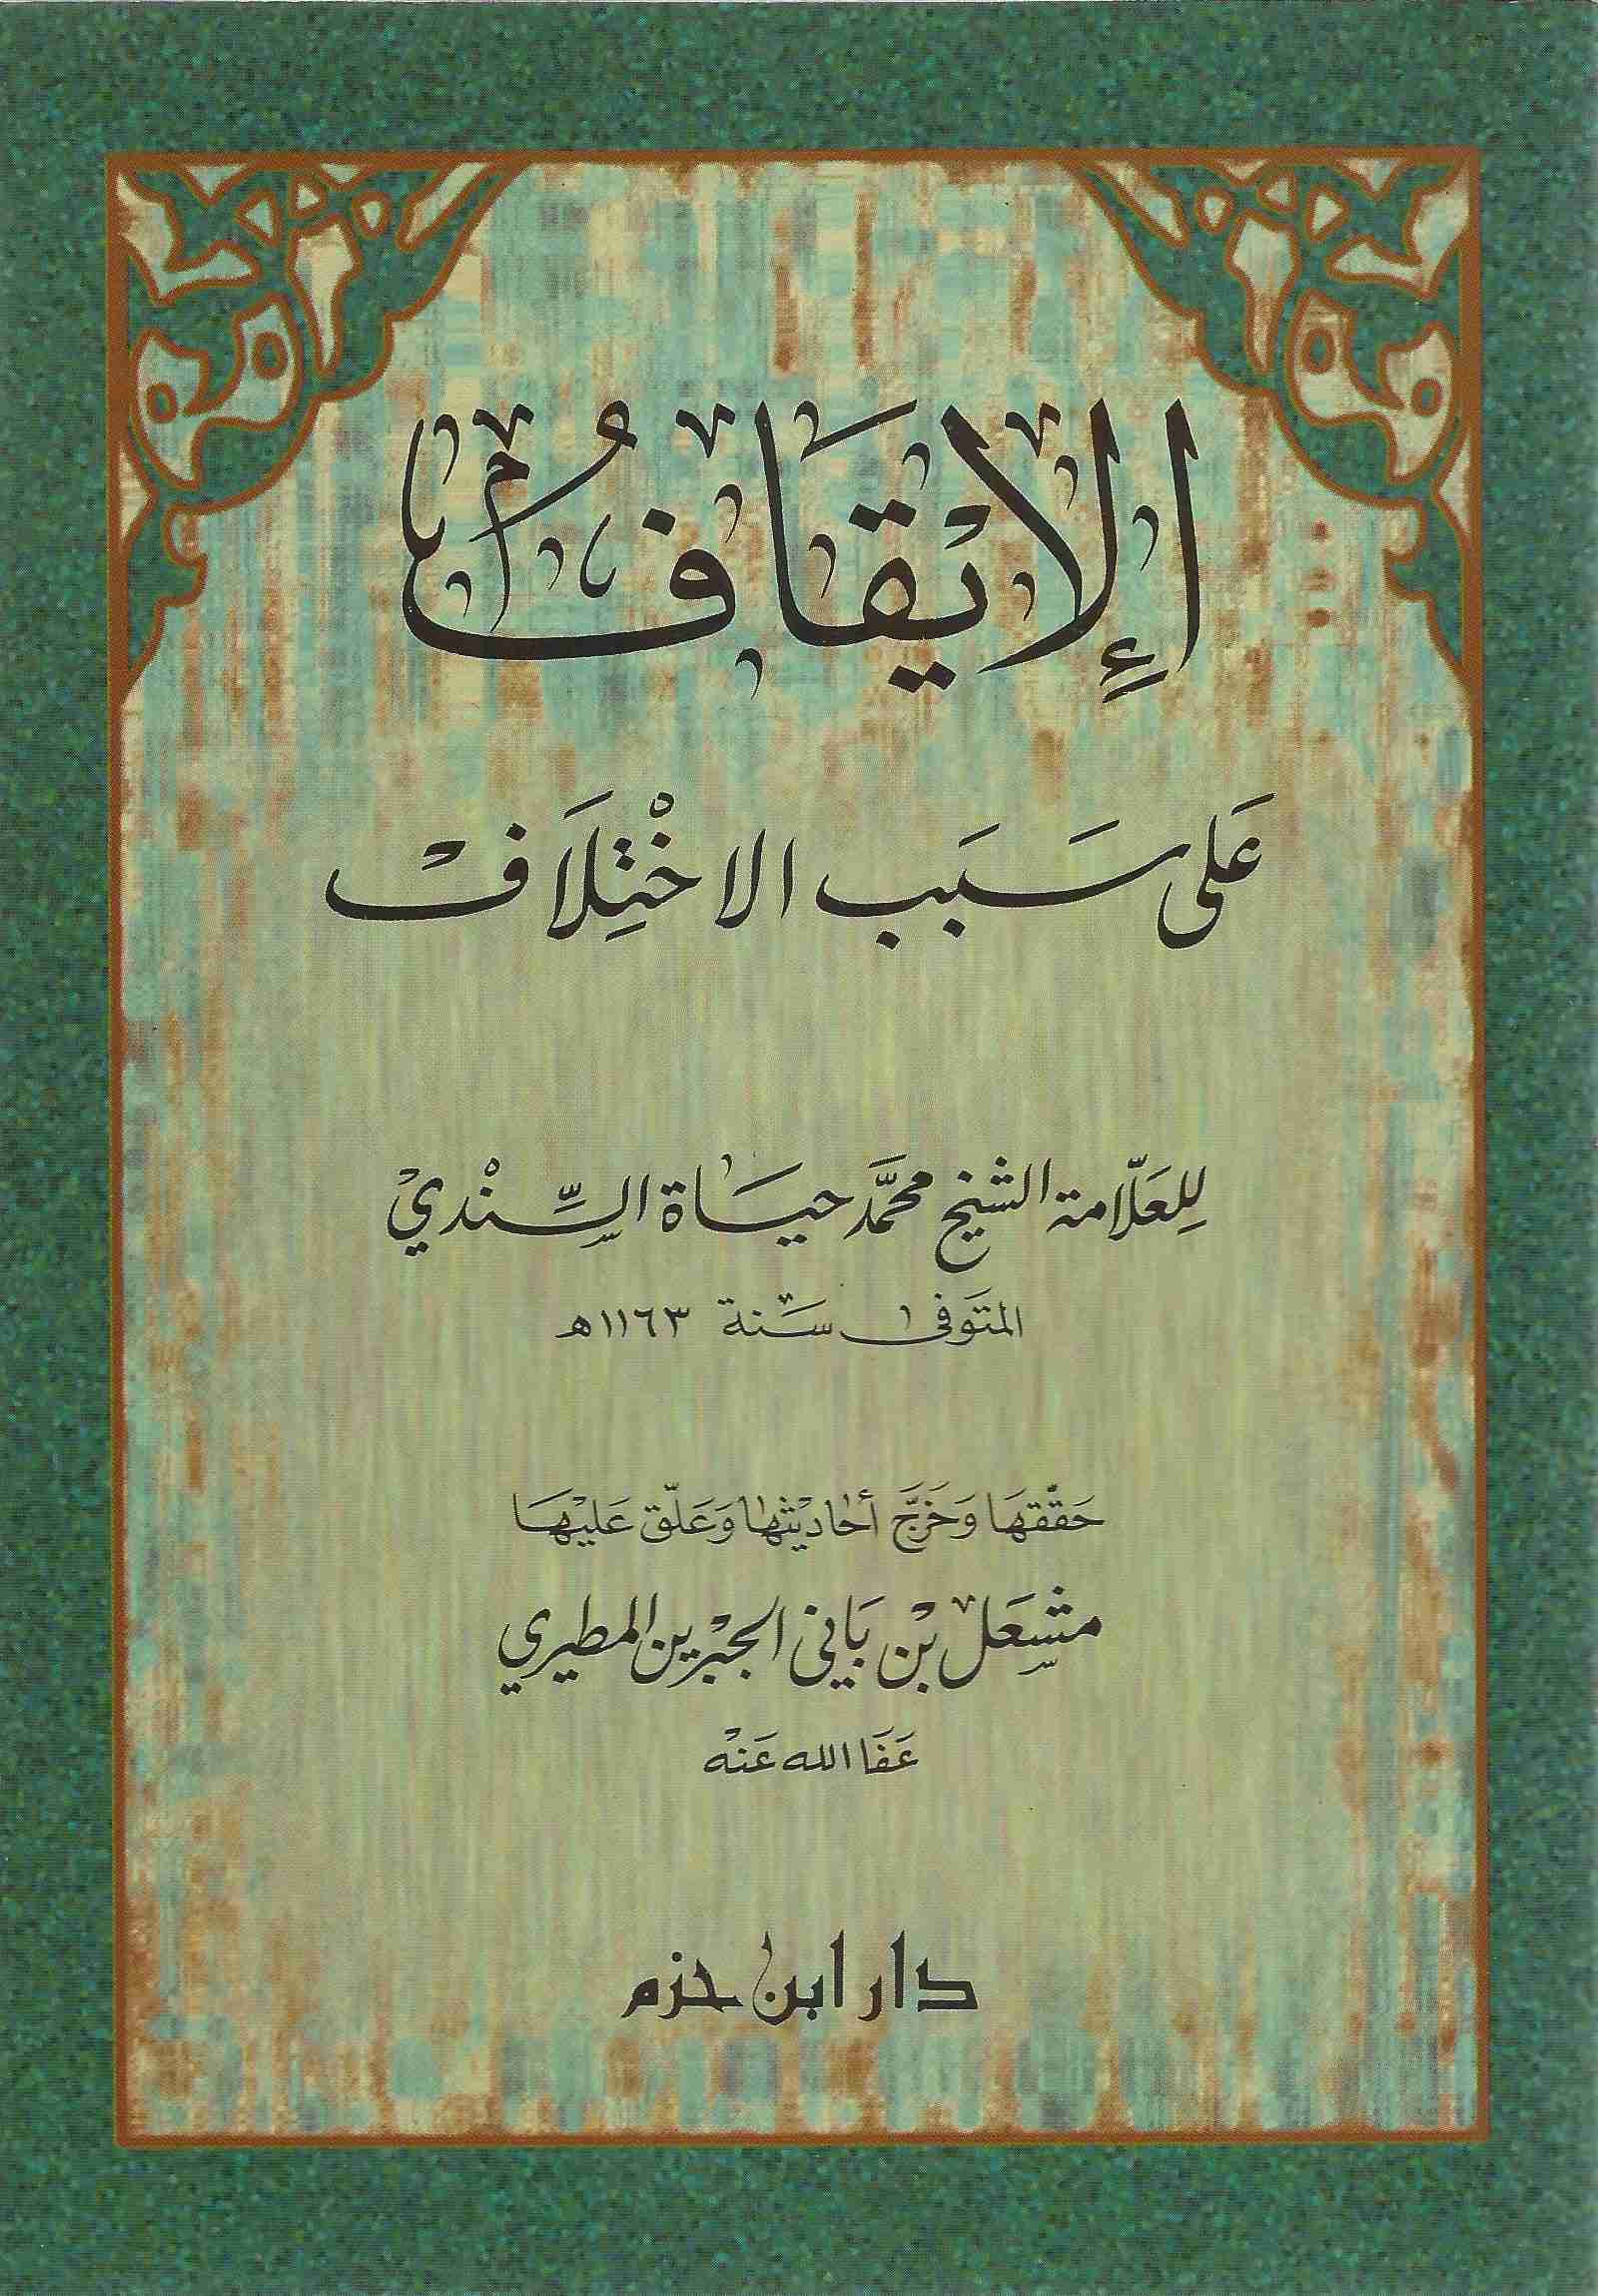 الإيقَافُ
عَلى سَبَب الاخْتِلَافْ
لِلعَلّامة الشيخ محمَّد حيَاة السِّنْديْ
المتَوَفى سَنة ١١٦٣هـ
حَقّقهَا وَخَرَّج أحاديْثها وَعَلّق عَليْهَا
مشعَل بْن بَاني الجبْرين المطيري
عَفَا الله عَنْه
دار ابن حزم